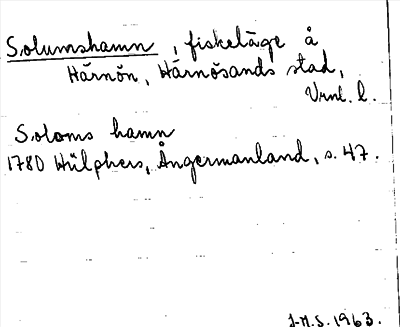 Solumshamn, fiskeläge å
Härnön, Härnösands stad,
Vrnl. l.
Soloms hamn
1780 Hülphers, Ångermanland, s. 47.
J-M.S. 1963.